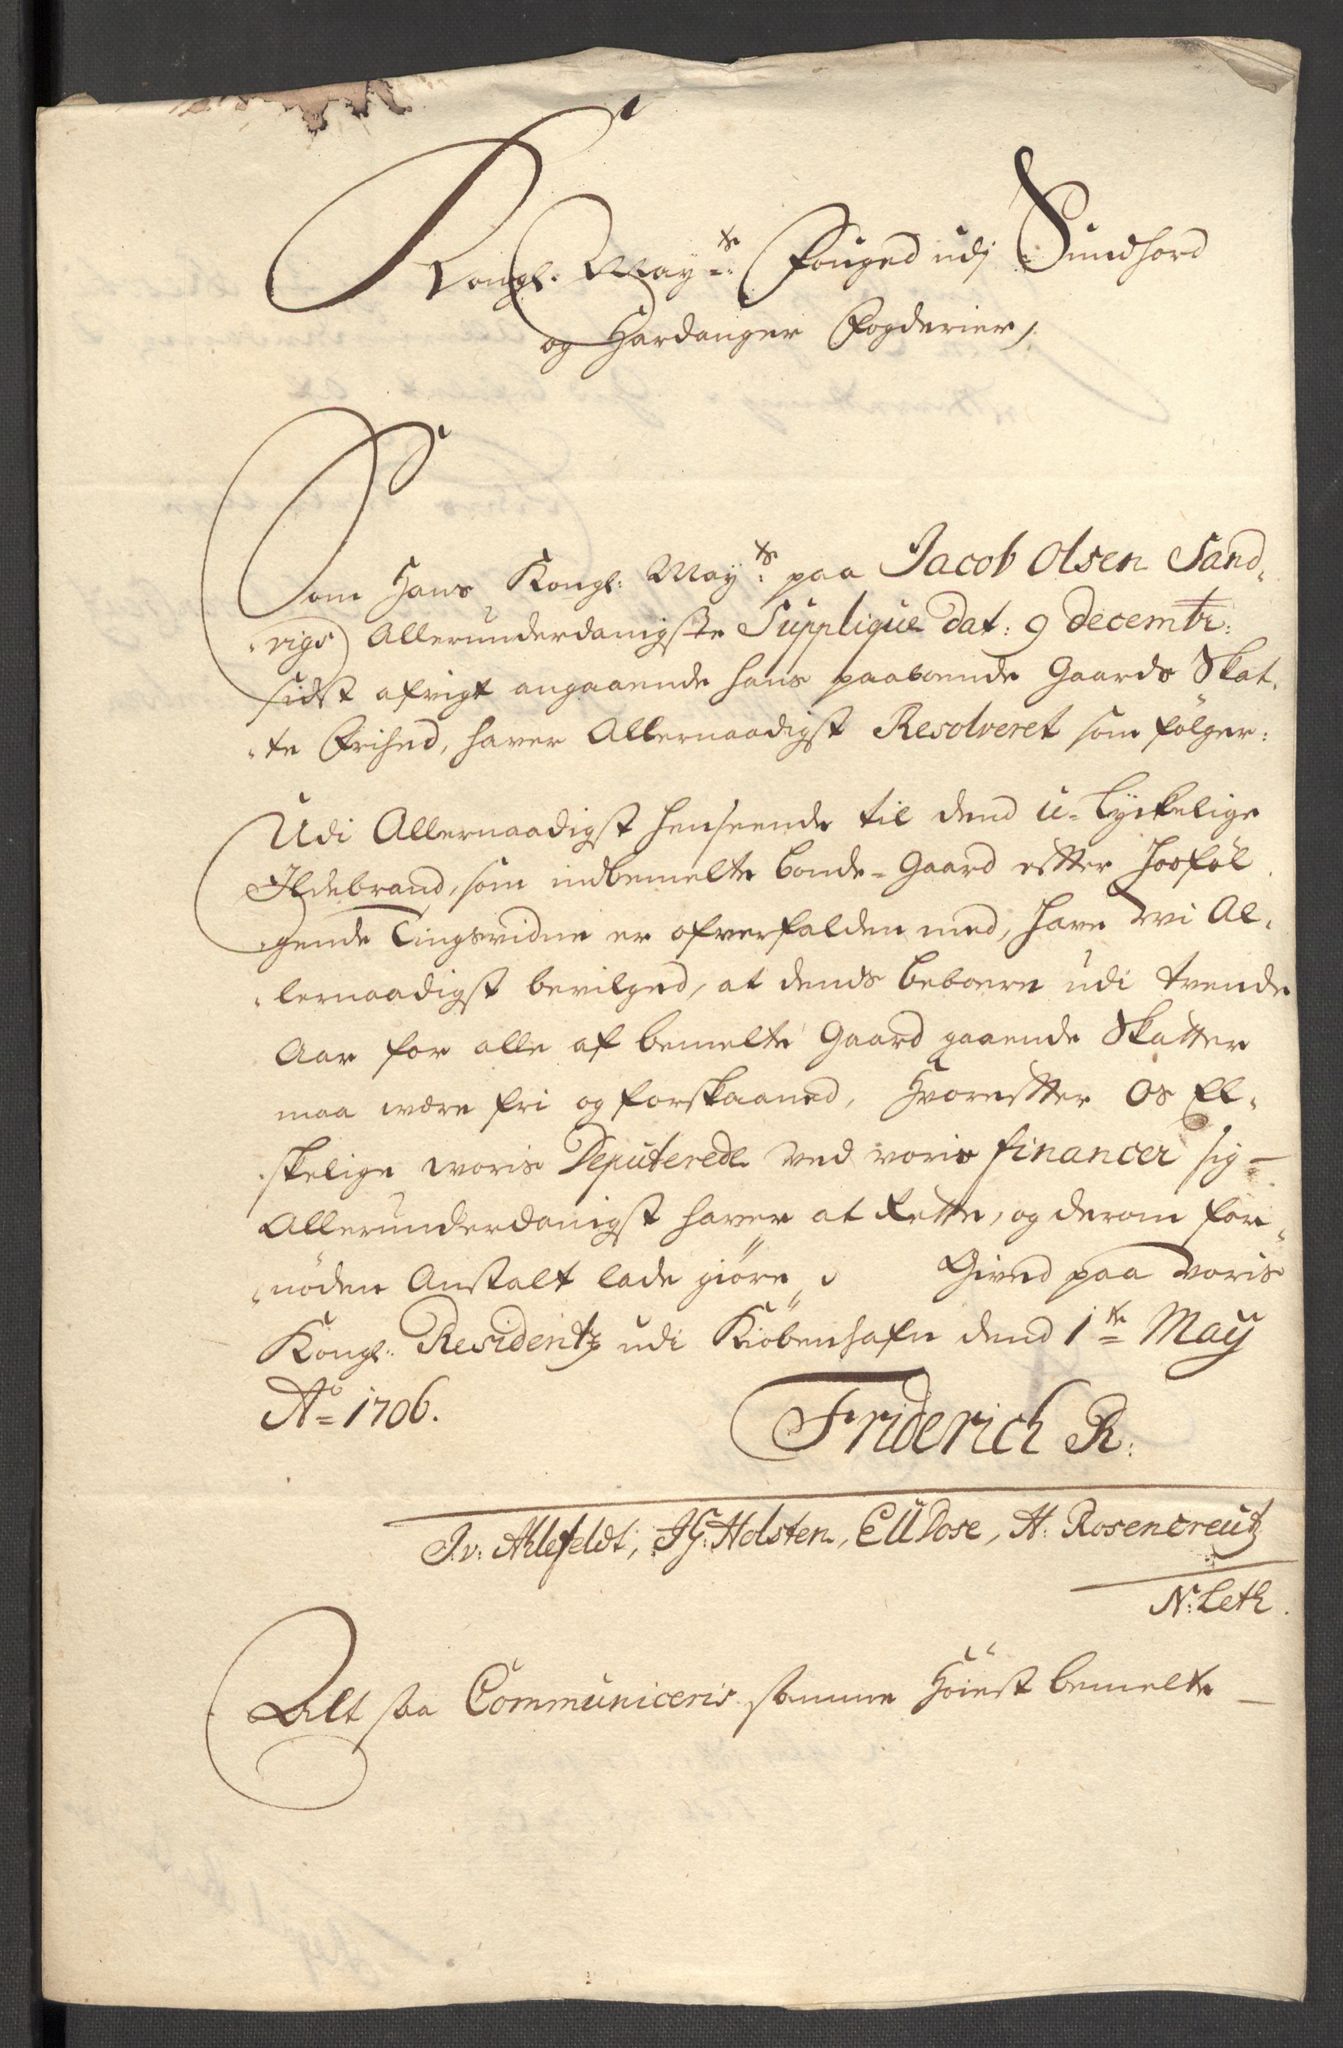 Kongl: May:ts Fouged udj Sundhord
og Hardanger Fogderier,
Som Hans Kongl: May:ts paa Jacob Olsen Sand-
vigs Allerunderdanigste Supplique dat: 9 decembr:
sidst afvigt angaaende hans paaboende Gaards Skat-
te Frihed, hafver Allernaadigst Resolveret som følger:
Udi Allernaadigst henseende til dend u-lyckelige
Ildebrand, som indbemelte bonde-Gaard efter hosføl-
gende Tingsvidne er ofverfalden med, hafve Wi Al-
lernaadigst bevilged, at dends beboere udi trende
Aar for alle af bemelte Gaard gaaende Skatter
maa være fri og forskaaned, Hvorefter Os El-
skelige woris Deputerede ved voris financer sig
Allerunderdanigst hafver at Rette, og derom for-
nøden Anstalt lade giøre, Gived paa Voris
Kongl: Residentz udi Kiöbenhafn dend 1te May
Ao 1706.
Friderich R:
J.v: Ahlefeldt, JG: Holsten, CU Dose, H: Rosencreutz
N: Leth.
Alt saa Communiceris samme Høiest bemelte